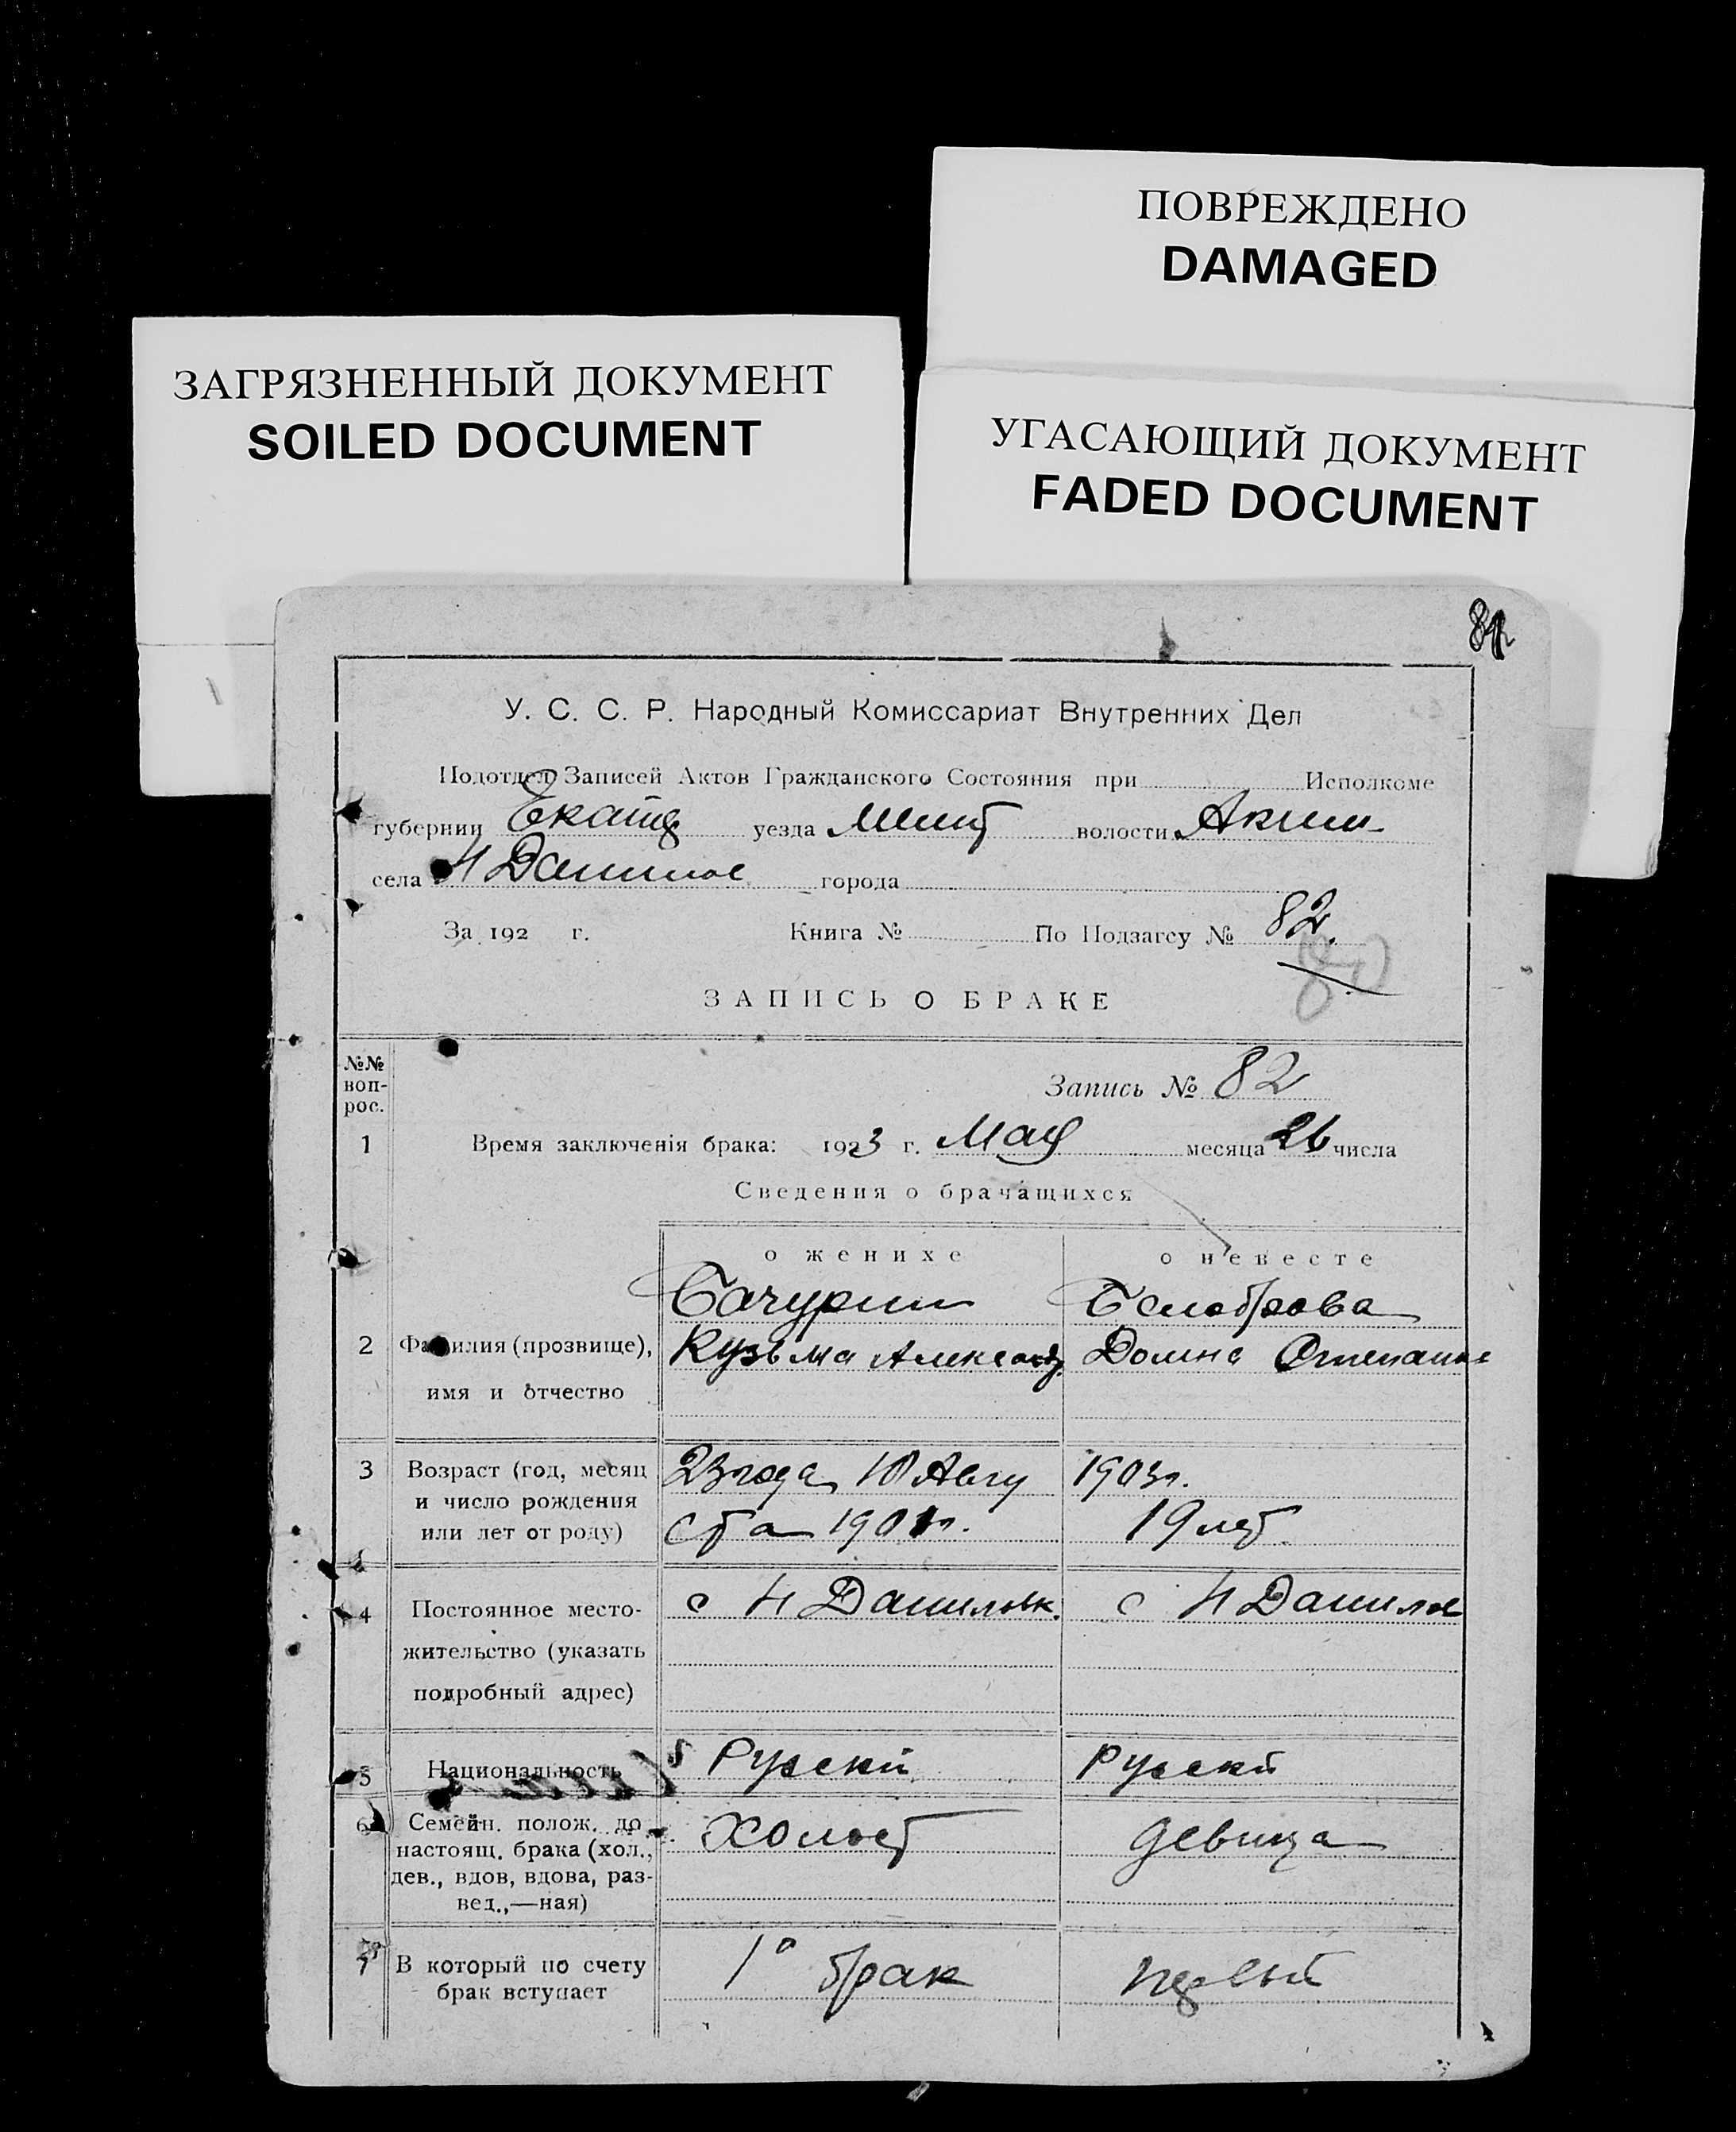 ПОВРЕЖДЕНО
DAMAGED
ЗАГРЯЗНЕННЫЙ ДОКУМЕНТ
SOILED DOCUMENT
УГАСАЮЩИЙ ДОКУМЕНТ
FADED DOCUMENT
У. С. С. Р. Народный Комиссариат Внутренних Дел
Подотдел Записей Актов Гражданского Состояния при Исполкоме
губернии Екат уезда Мелит волости Аким
села Н Данилов города
За 192 г. Книга № По Подзагсу № 82.
80
ЗАПИСЬ О БРАКЕ
№№ вопрос.
Запись № 82
1 Время заключенія брака: 1923 г. Мая месяца 26 числа
Сведения о брачащихся
о женихе о невесте
Бачурин Белоброва
2 Фамилия (прозвище), Кузьма Александ. Домна Степанов
имя и отчество
3 Возраст (год, месяц 23 года 10 Авгу 1903 г.
и число рождения
или лет от роду) ста 190 г. 19 лет
4 Постоянное место- с Н Данильвк. с Н Данилов
жительство (указать
подробный адрес)
5 Национальность Руский Руский
6 Семейн. полож. до Холост девица
настоящ. брака (хол.,
дев., вдов, вдова, раз-
вед.,—ная)
7 В который по счету 1й брак первый
брак вступает